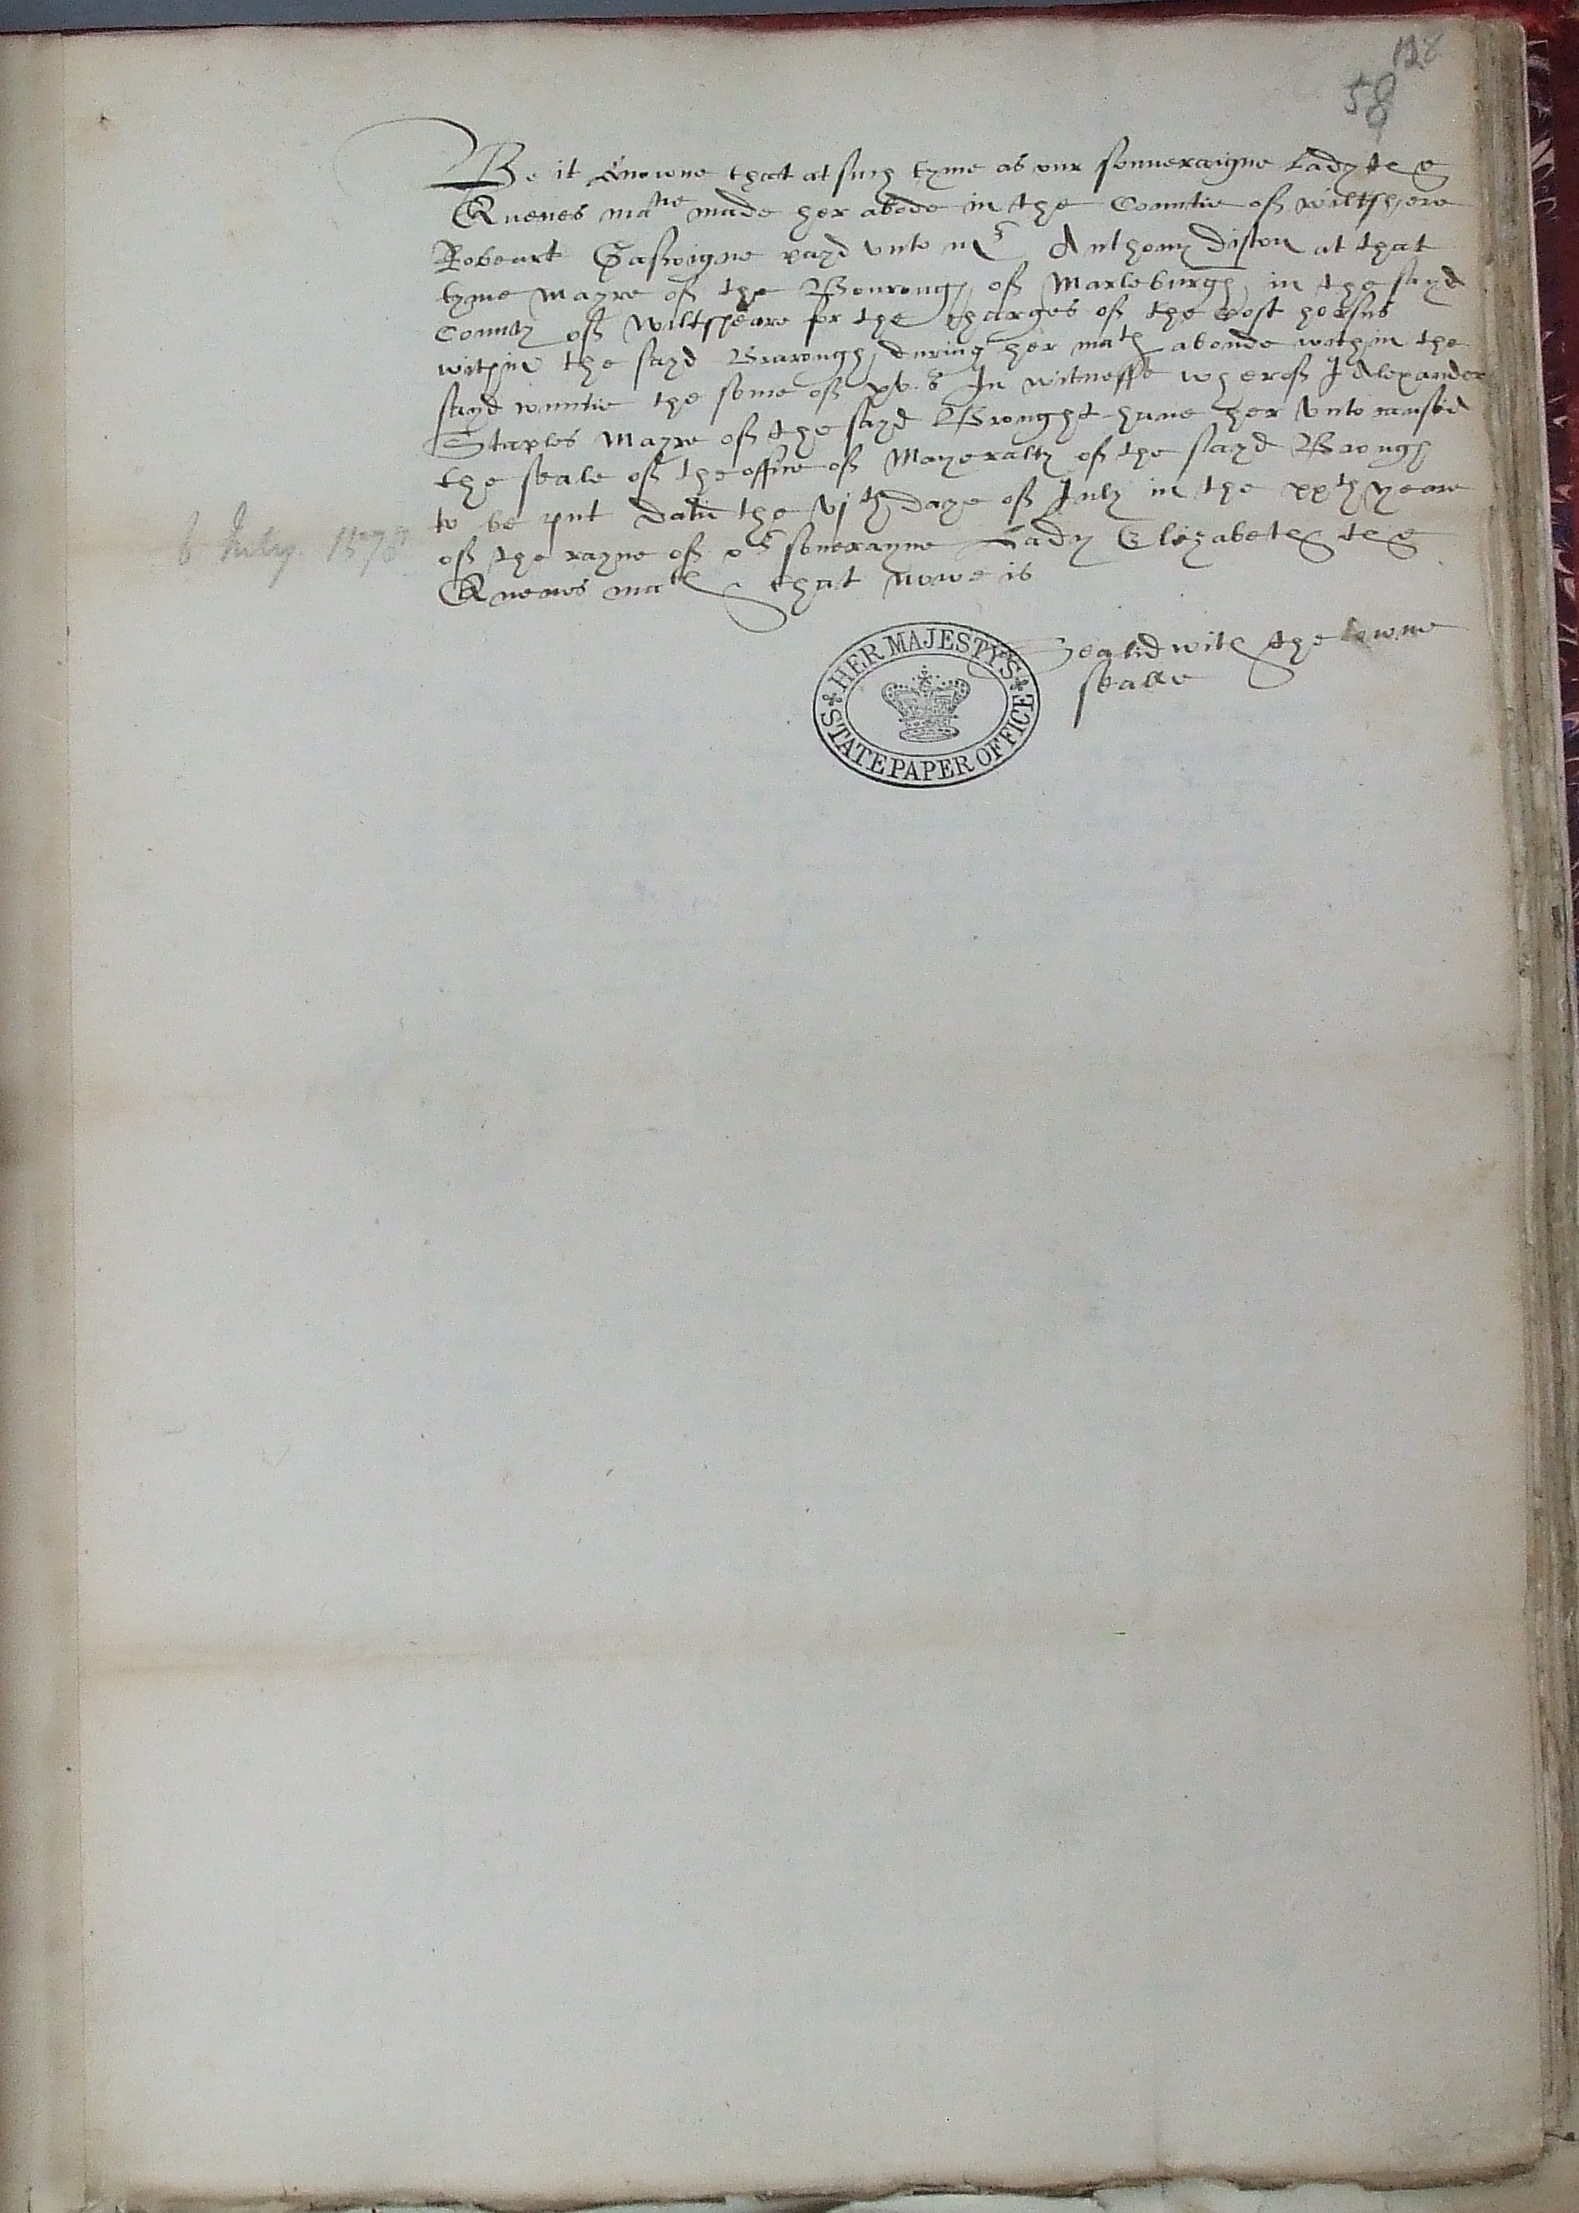 128
58
Be it knowne that at such tyme as our souueraigne Lady the
Quenes matie made her abode in the Countie off wiltshere
Robeart Gascoigne payd vnto mr Anthony diston at that
tyme mayre off the Bourough off Marleburgh in the sayd
County off Wiltsheare for the charges off the post horsis
within the sayd Bvrough during her math aboude within the
sayd countie the some off xv.s In witnesse wheroff I Alexander
Staples Mayre off the sayd Brought haue her vnto causid
the seale off the office off Mayeralty off the sayd Brough
to be put datid the vjth daye off July in the xxth yeare
off the rayne off or souerayne Lady Elizabeth the
Quenes math that nowe is
6 July. 1578
Sealid with the towne
sealle
HER MAJESTY'S
STATE PAPER OFFICE